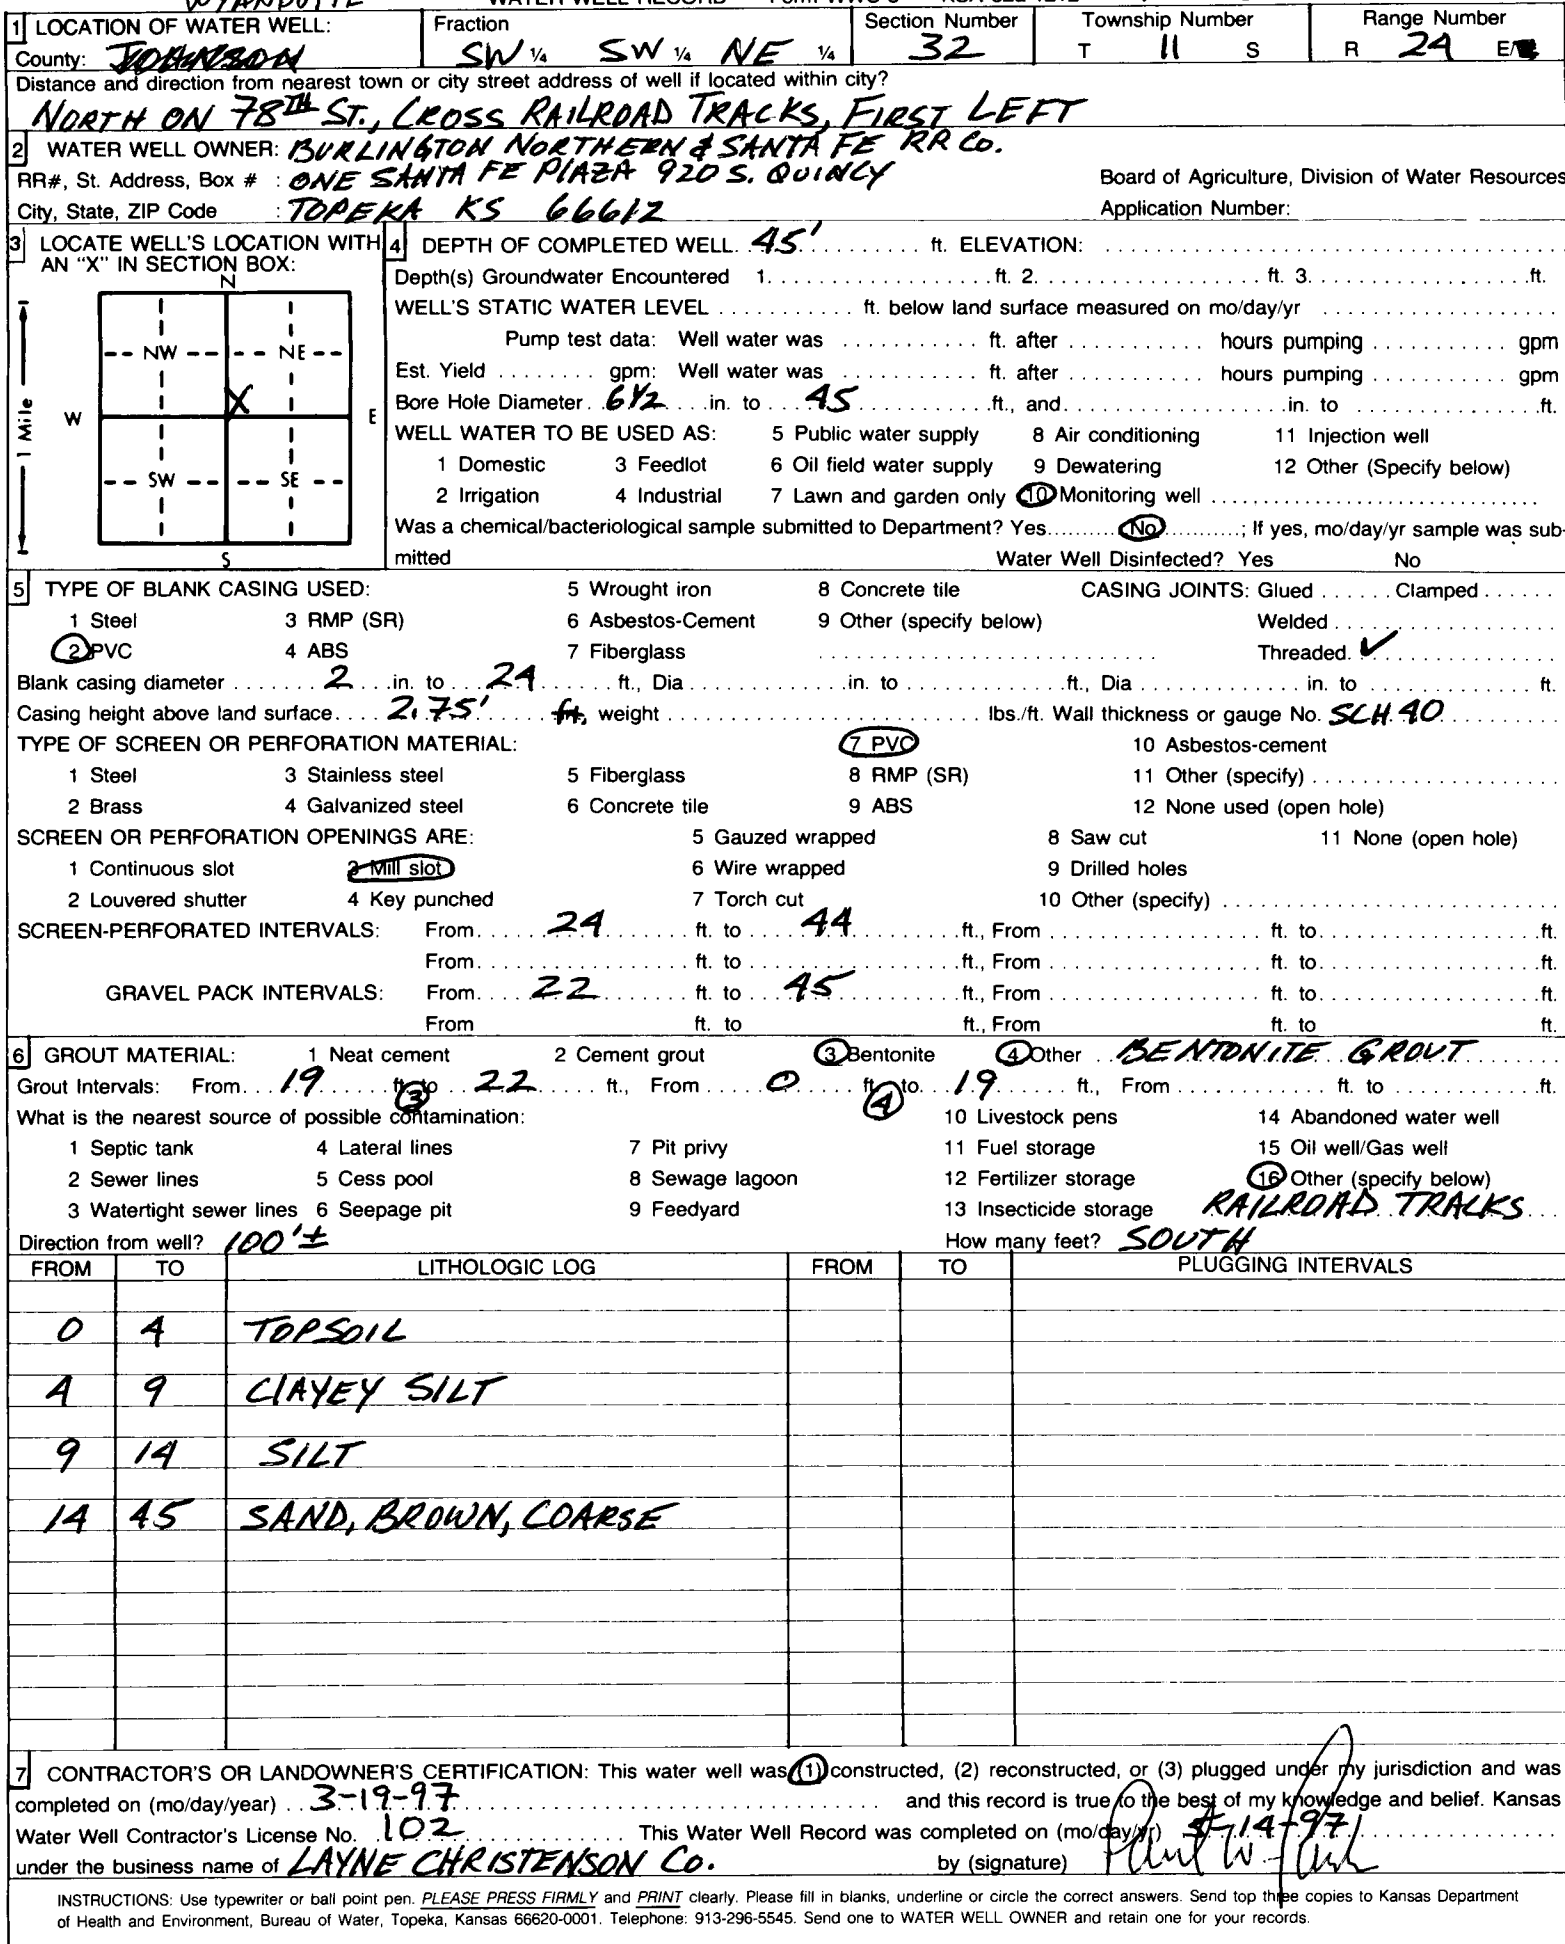 WYANDOTTE WATER WELL RECORD Form WWC-5 KSA 82a-1212
1 LOCATION OF WATER WELL: Fraction Section Number Township Number Range Number
County: JOHNSON SW ¼ SW ¼ NE ¼ 32 T 11 S R 24 E/W
Distance and direction from nearest town or city street address of well if located within city?
NORTH ON 78TH ST., CROSS RAILROAD TRACKS, FIRST LEFT
2 WATER WELL OWNER: BURLINGTON NORTHERN & SANTA FE RR CO.
RR#, St. Address, Box # : ONE SANTA FE PLAZA 920 S. QUINCY Board of Agriculture, Division of Water Resources
City, State, ZIP Code : TOPEKA KS 66612 Application Number:
3 LOCATE WELL'S LOCATION WITH AN "X" IN SECTION BOX:
N
NW NE
X
W E
SW SE
S
1 Mile
4 DEPTH OF COMPLETED WELL. 45' ft. ELEVATION:
Depth(s) Groundwater Encountered 1. ft. 2. ft. 3. ft.
WELL'S STATIC WATER LEVEL ft. below land surface measured on mo/day/yr
Pump test data: Well water was ft. after hours pumping gpm
Est. Yield gpm: Well water was ft. after hours pumping gpm
Bore Hole Diameter 6 1/2 in. to 45 ft., and in. to ft.
WELL WATER TO BE USED AS: 5 Public water supply 8 Air conditioning 11 Injection well
1 Domestic 3 Feedlot 6 Oil field water supply 9 Dewatering 12 Other (Specify below)
2 Irrigation 4 Industrial 7 Lawn and garden only 10 Monitoring well
Was a chemical/bacteriological sample submitted to Department? Yes No ; If yes, mo/day/yr sample was sub-
mitted Water Well Disinfected? Yes No
5 TYPE OF BLANK CASING USED: 5 Wrought iron 8 Concrete tile CASING JOINTS: Glued Clamped
1 Steel 3 RMP (SR) 6 Asbestos-Cement 9 Other (specify below) Welded
2 PVC 4 ABS 7 Fiberglass Threaded. ✓
Blank casing diameter 2 in. to 24 ft., Dia in. to ft., Dia in. to ft.
Casing height above land surface 2.75' ft, weight lbs./ft. Wall thickness or gauge No. SCH. 40
TYPE OF SCREEN OR PERFORATION MATERIAL: 7 PVC 10 Asbestos-cement
1 Steel 3 Stainless steel 5 Fiberglass 8 RMP (SR) 11 Other (specify)
2 Brass 4 Galvanized steel 6 Concrete tile 9 ABS 12 None used (open hole)
SCREEN OR PERFORATION OPENINGS ARE: 5 Gauzed wrapped 8 Saw cut 11 None (open hole)
1 Continuous slot 3 Mill slot 6 Wire wrapped 9 Drilled holes
2 Louvered shutter 4 Key punched 7 Torch cut 10 Other (specify)
SCREEN-PERFORATED INTERVALS: From 24 ft. to 44 ft., From ft. to ft.
From ft. to ft., From ft. to ft.
GRAVEL PACK INTERVALS: From 22 ft. to 45 ft., From ft. to ft.
From ft. to ft., From ft. to ft.
6 GROUT MATERIAL: 1 Neat cement 2 Cement grout 3 Bentonite 4 Other BENTONITE GROUT
Grout Intervals: From 19 ft. to 22 ft., From 0 ft. to 19 ft., From ft. to ft.
3 4
What is the nearest source of possible contamination: 10 Livestock pens 14 Abandoned water well
1 Septic tank 4 Lateral lines 7 Pit privy 11 Fuel storage 15 Oil well/Gas well
2 Sewer lines 5 Cess pool 8 Sewage lagoon 12 Fertilizer storage 16 Other (specify below)
3 Watertight sewer lines 6 Seepage pit 9 Feedyard 13 Insecticide storage RAILROAD TRACKS
Direction from well? 100'± How many feet? SOUTH
FROM TO LITHOLOGIC LOG FROM TO PLUGGING INTERVALS
0 4 TOPSOIL
4 9 CLAYEY SILT
9 14 SILT
14 45 SAND, BROWN, COARSE
7 CONTRACTOR'S OR LANDOWNER'S CERTIFICATION: This water well was (1) constructed, (2) reconstructed, or (3) plugged under my jurisdiction and was
completed on (mo/day/year) 3-19-97 and this record is true to the best of my knowledge and belief. Kansas
Water Well Contractor's License No. 102 This Water Well Record was completed on (mo/day/yr) 14-97
under the business name of LAYNE CHRISTENSON CO. by (signature)
INSTRUCTIONS: Use typewriter or ball point pen. PLEASE PRESS FIRMLY and PRINT clearly. Please fill in blanks, underline or circle the correct answers. Send top three copies to Kansas Department
of Health and Environment, Bureau of Water, Topeka, Kansas 66620-0001. Telephone: 913-296-5545. Send one to WATER WELL OWNER and retain one for your records.